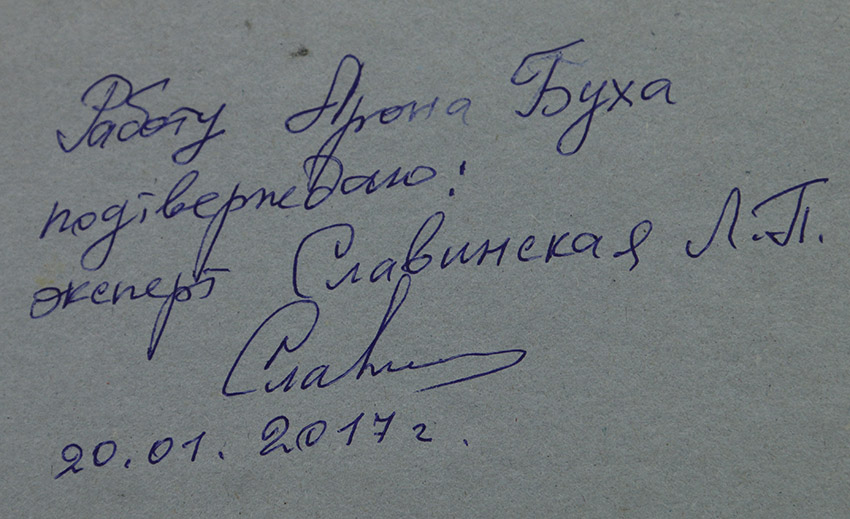 Работу Арона Буха
подтверждаю:
эксперт Славинская Л.П.
Слав
20.01.2017 г.